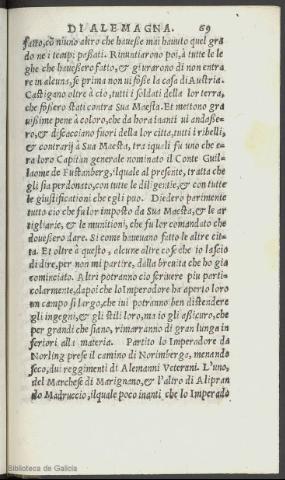 DI ALEMAGNA. 69
fatto, cō niuno altro che hauesse mai hauuto quel gra
do ne i tempi passati. Rinuntiarono poi, à tutte le le
ghe che hauessero fatto, & giurarono di non entra
re in alcuna, se prima non ui fosse la casa di Austria.
Castigano oltre à ciò, tutti i soldati della lor terra,
che fossero stati contra Sua Maesta. Et mettono gra
uissime pene à coloro, che da hora inanti ui andasse-
ro, & discacciano fuori della lor citta, tutti i ribelli,
& contrarij à Sua Maesta, tra iquali fu uno che e-
ra loro Capitan generale nominato il Conte Guil-
laome de Fustanberg, ilquale al presente, tratta che
gli sia perdonato, con tutte le diligentie, & con tutte
le giustificationi che egli puo. Diedero parimente
tutto cio che fu lor imposto da Sua Maesta, & le ar
tigliarie, & le munitioni, che fu lor comandato che
douessero dare. Si come haueuano fatto le altre cit-
ta. Et oltre à questo, alcune altre cose che io lascio
di dire, per non mi partire, dalla breuita che ho gia
cominciato. Altri potranno cio scriuere piu parti-
colarmente, dapoi che lo Imperadore ha aperto loro
un campo si largo, che iui potranno ben distendere
gli ingegni, & gli stili loro, ma io gli assicuro, che
per grandi che siano, rimarranno di gran lunga in
feriori alla materia. Partito lo Imperadore da
Norling prese il camino di Norimberga, menando
seco, dui reggimenti di Alemanni Veterani. L'uno,
del Marchese di Marignano, & l'altro di Alipran
do Madruccio, ilquale poco inanti che lo Imperado
Biblioteca de Galicia